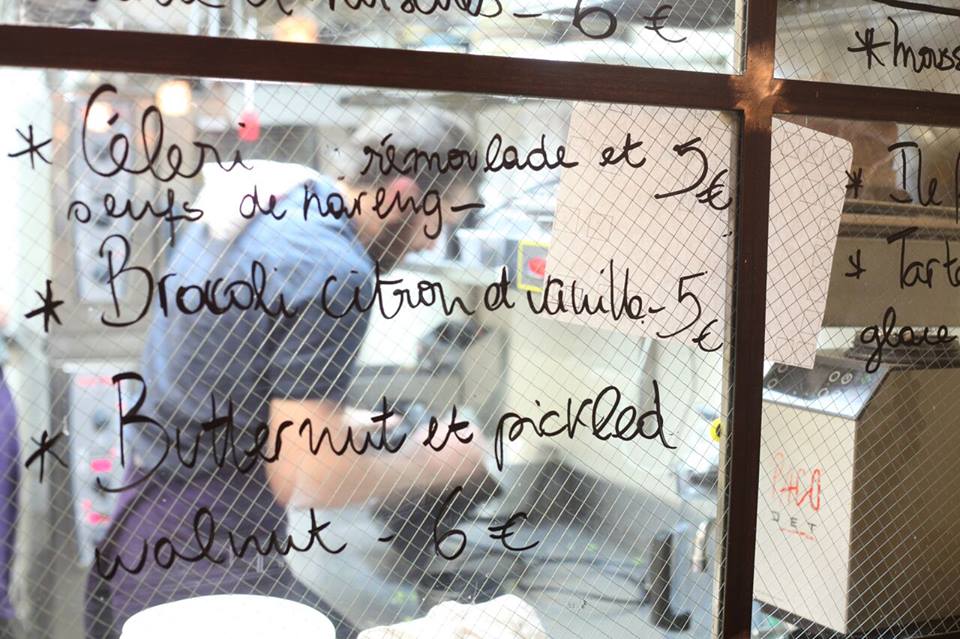 et - 6 €
* Céleri rémoulade et 5 €
oeufs de hareng -
* Brocoli citron et vanille - 5 €
* Butternut et pickled
walnut - 6 €
* Mouss
* Ile
* Tart
glace
DET